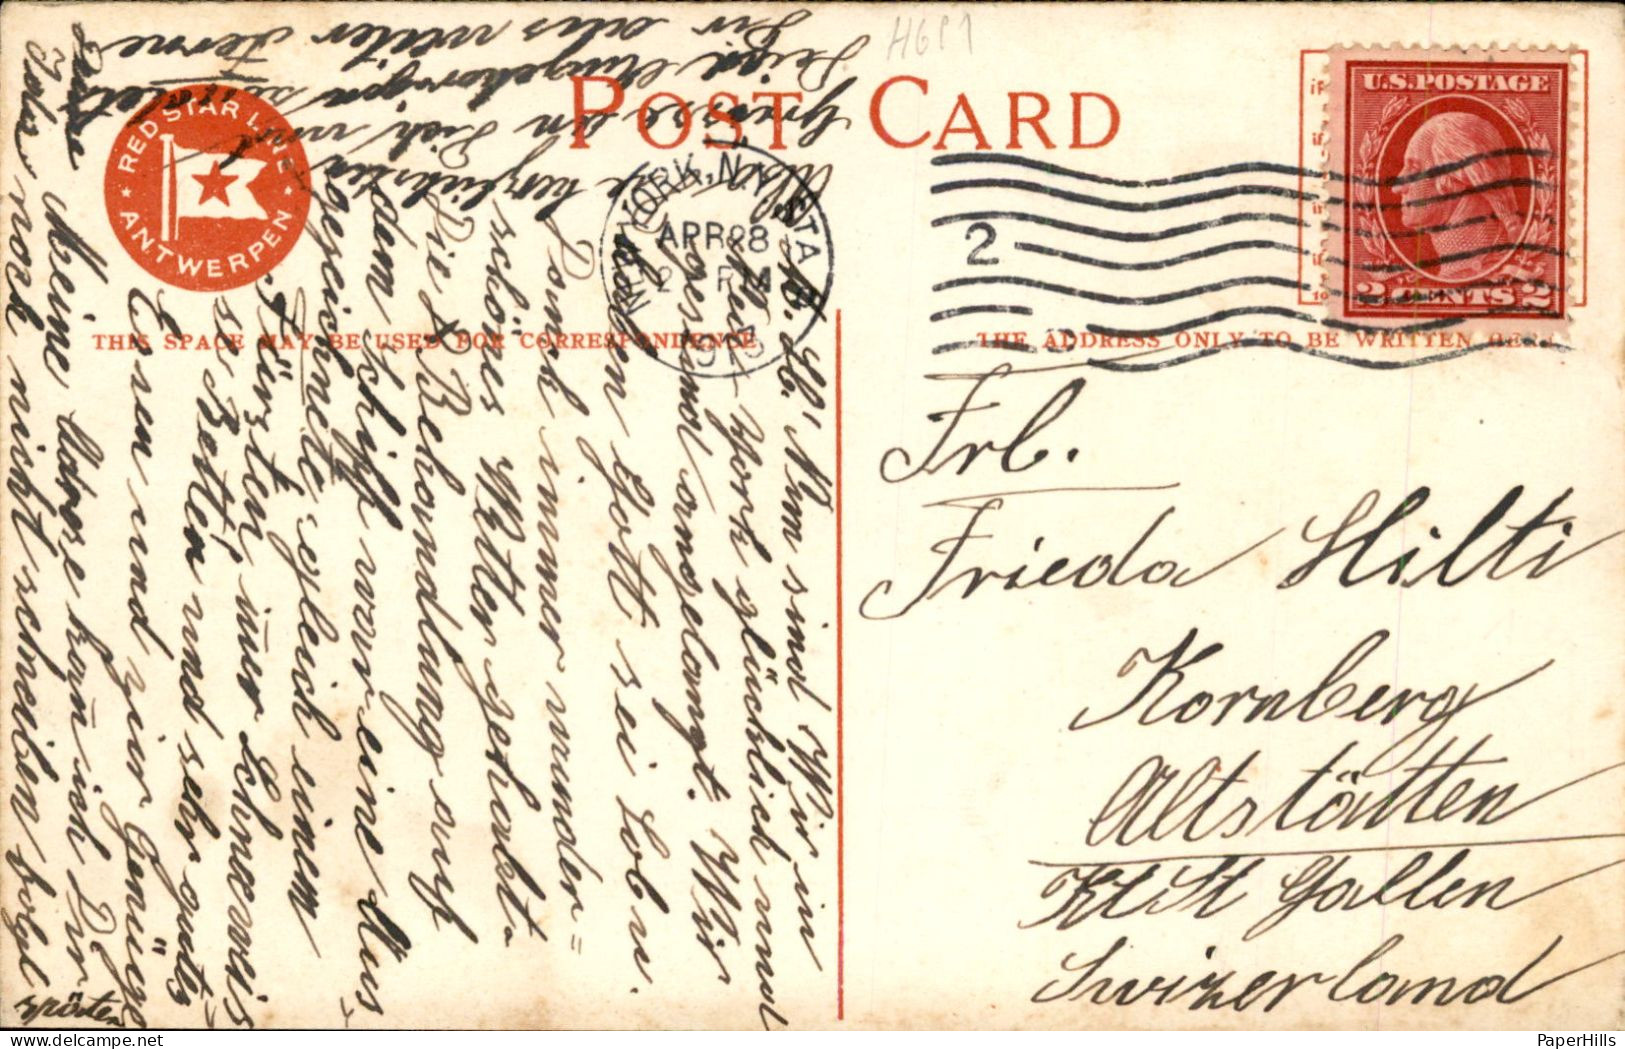 H6P1
POST CARD
RED STAR LINE
ANTWERPEN
U.S. POSTAGE
2 CENTS 2
NEW YORK, N.Y. STA
APR 28
2 PM
2
THIS SPACE MAY BE USED FOR CORRESPONDENCE
THE ADDRESS ONLY TO BE WRITTEN HERE
Frl.
Frieda Hilti
Kornberg
Altstätten
Kt St Gallen
Swizerland
M. Lb! Nun sind Wir in
New-York glücklich und
angelangt. Wir
haben Gott sei Lob u.
Dank immer wunder=
schönes Wetter gehabt.
Die Behandlung auf
dem Schiff war eine Aus
gezeichnete, gleich einem
Fürsten, immer Schneeweis
se Betten und sehr gutes
Essen und zur Genüge
Meine Adresse kan ich Dir
Ida noch nicht schreiben folgt
später
herzlichste
Grüsse an Dich und
Deine Angehörigen sendet
Dir aus weiter Ferne